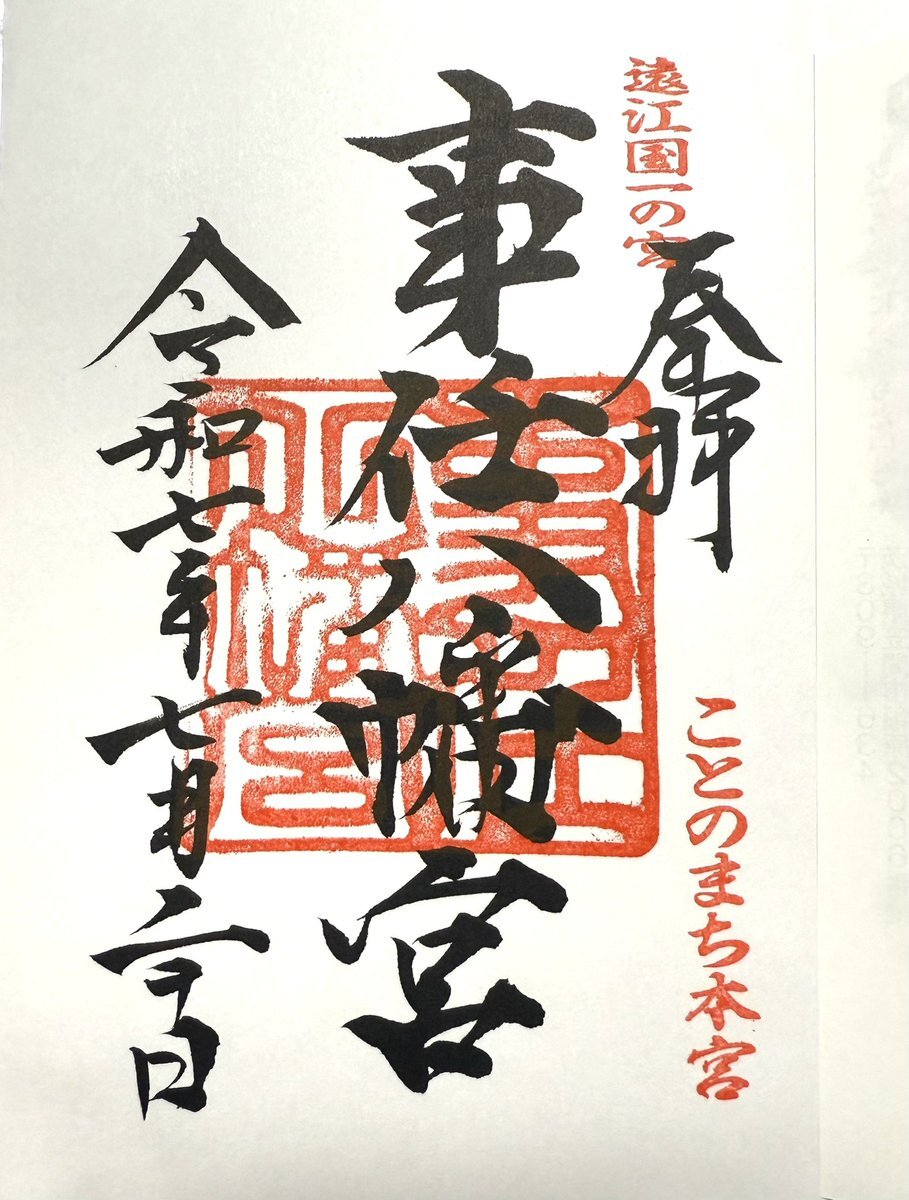 遠江国一の宮
奉拝
ことのまち本宮
事任八幡宮
令和七年七月二十日